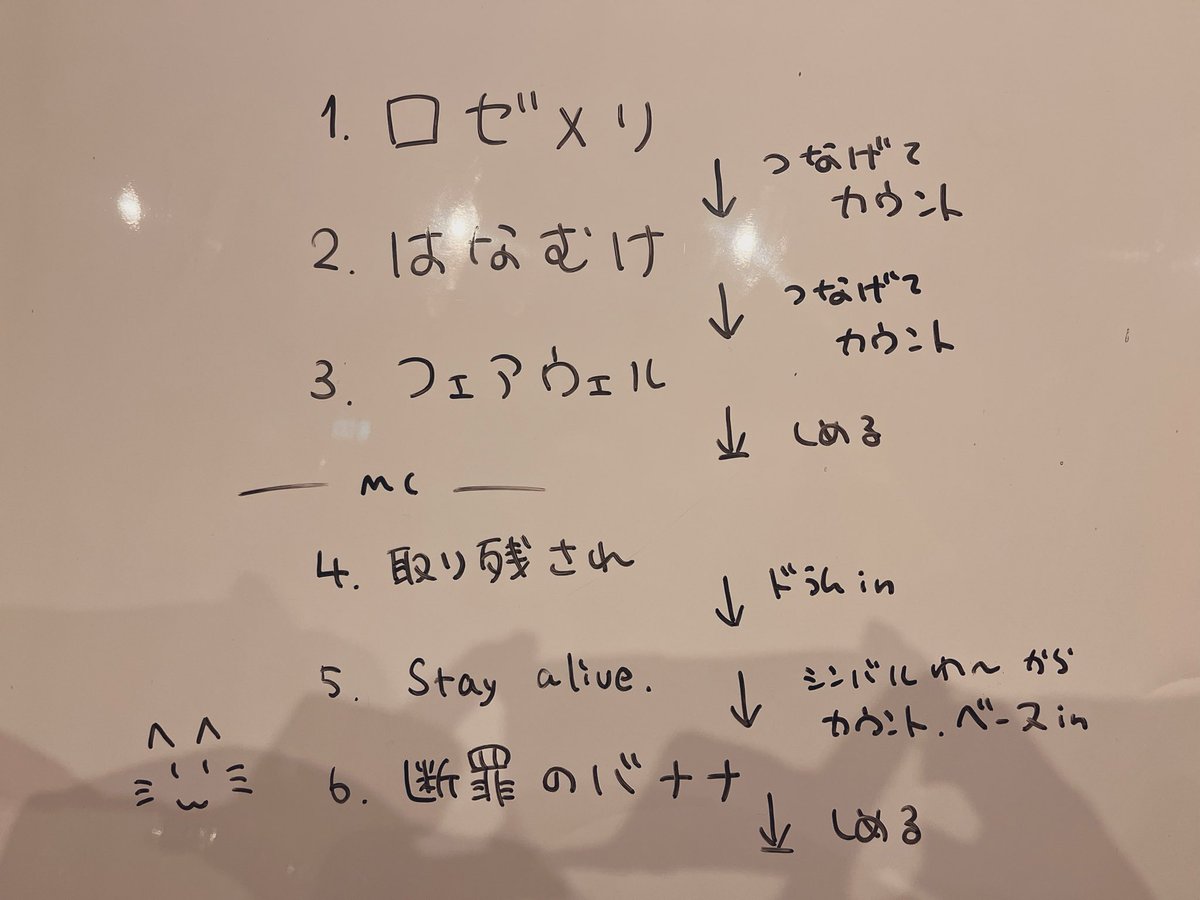 1. ロゼメリ
↓ つなげて
カウント
2. はなむけ
↓ つなげて
カウント
3. フェアウェル
↓ しめる
― MC ―
4. 取り残され
↓ ドラム in
5. Stay alive.
↓ シンバルわ〜から
カウント. ベースin
6. 断罪のバナナ
↓ しめる